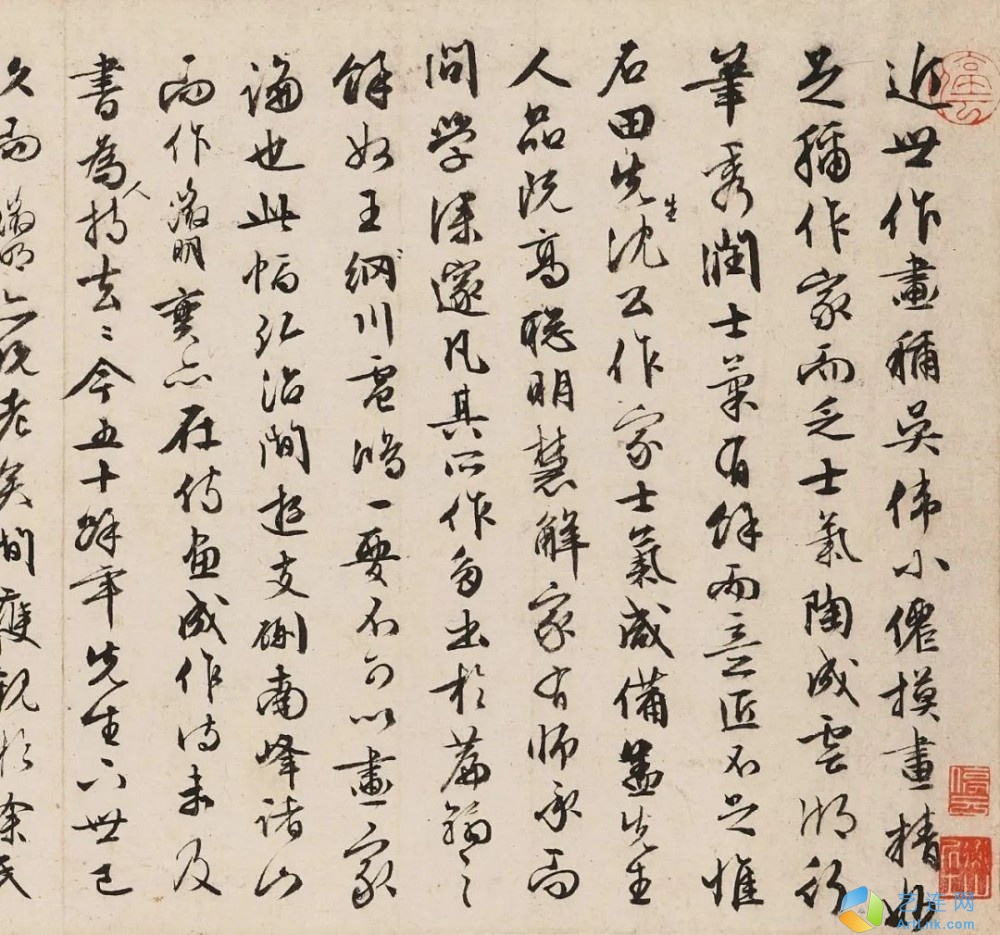 近世作畫稱吳偉小僊摸畫精妙
足稱作家而乏士氣陶成雲湖行
筆秀潤士氣有餘而意匠不足惟
石田先生沈公作家士氣咸備蓋先生
人品既高聰明慧解家有師承而
問學深邃凡其所作多出於篇翰之
餘如王網川雪鴻一要不可以畫家
論也此幅弘治間遊支硎南峰諸山
而作徵明實亦在侍畫成作詩未及
書為人持去〻今五十餘年先生下世已
久而徵明亦既老矣間獲觀於余氏
艺连网
ArtLnk.com